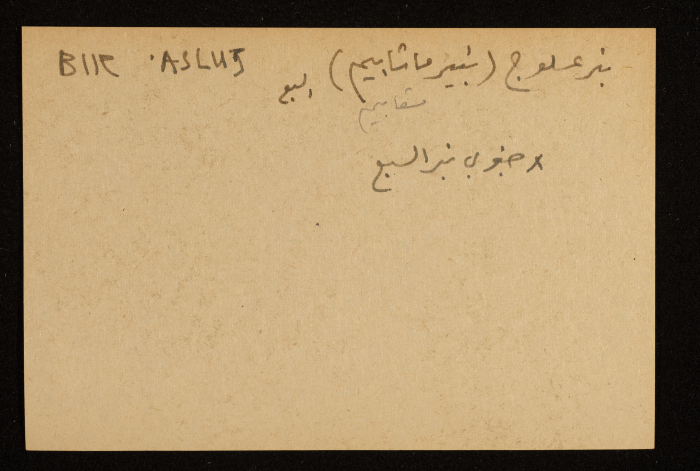 بئر عسلوج (بئير ماشابيم) السبع BIIR 'ASLUJ
مشابيم
x جنوبي بئر السبع